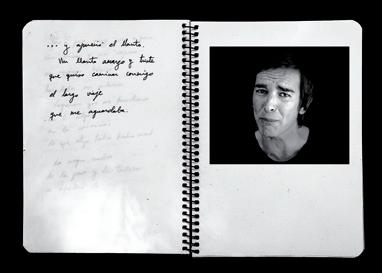 ... y apareció el llanto.
Un llanto amargo y triste
que quiso caminar conmigo
el largo viaje
que me aguardaba.